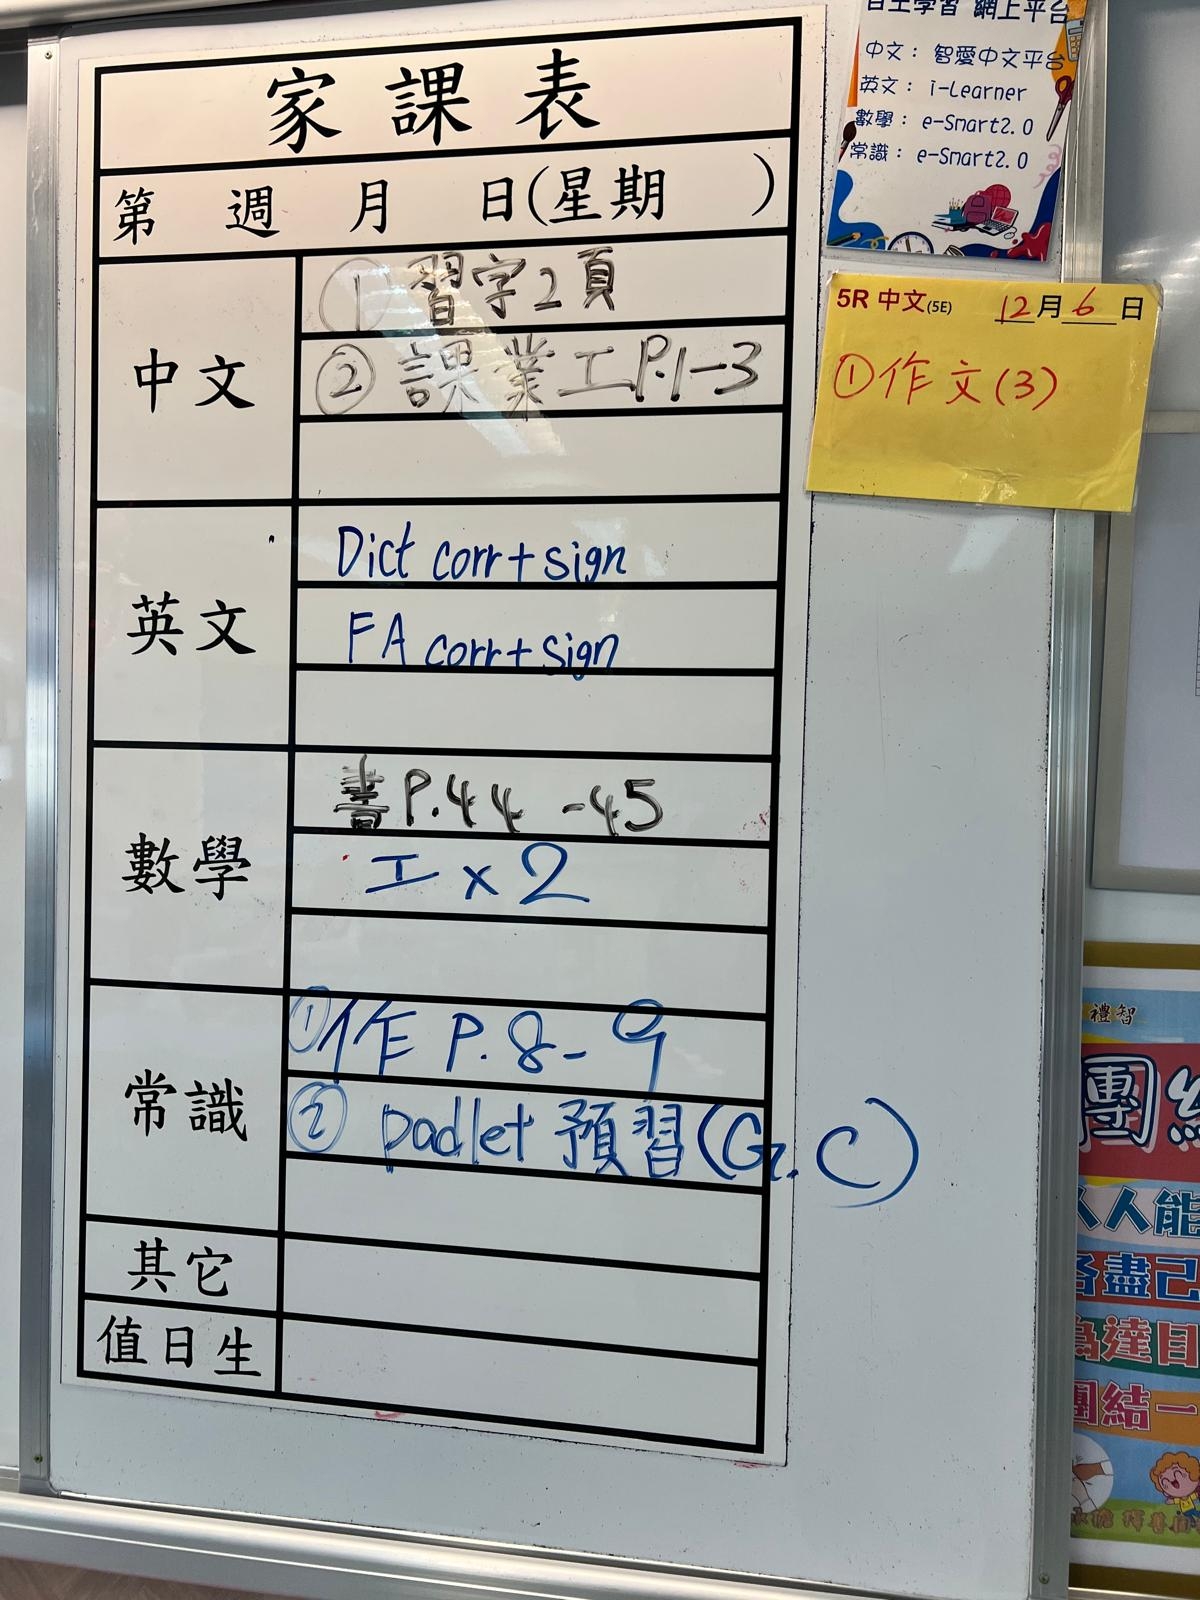 家課表
第 週 月 日(星期 )
中文
① 習字2頁
② 課業工P.1-3
英文
Dict corr+sign
FA corr+sign
數學
書P.44-45
工x2
常識
①作 P.8-9
② padlet 預習(G.C)
其它
值日生
自主學習 網上平台
中文：智愛中文平台
英文：i-Learner
數學：e-Smart2.0
常識：e-Smart2.0
5R 中文(5E) 12月6日
①作文(3)
禮智
團結
人人能
各盡己
為達目
團結一